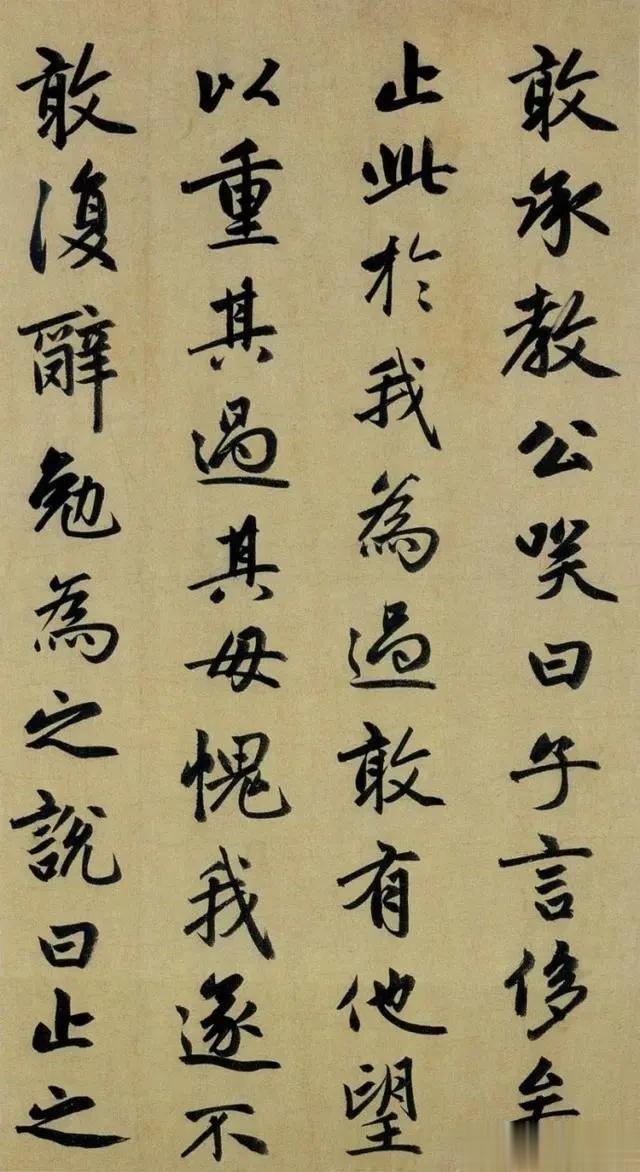 敢承教公唉曰予言侈至
止此於我為過敢有他望
以重其過其毋愧我遂不
敢復辭勉為之說曰止之